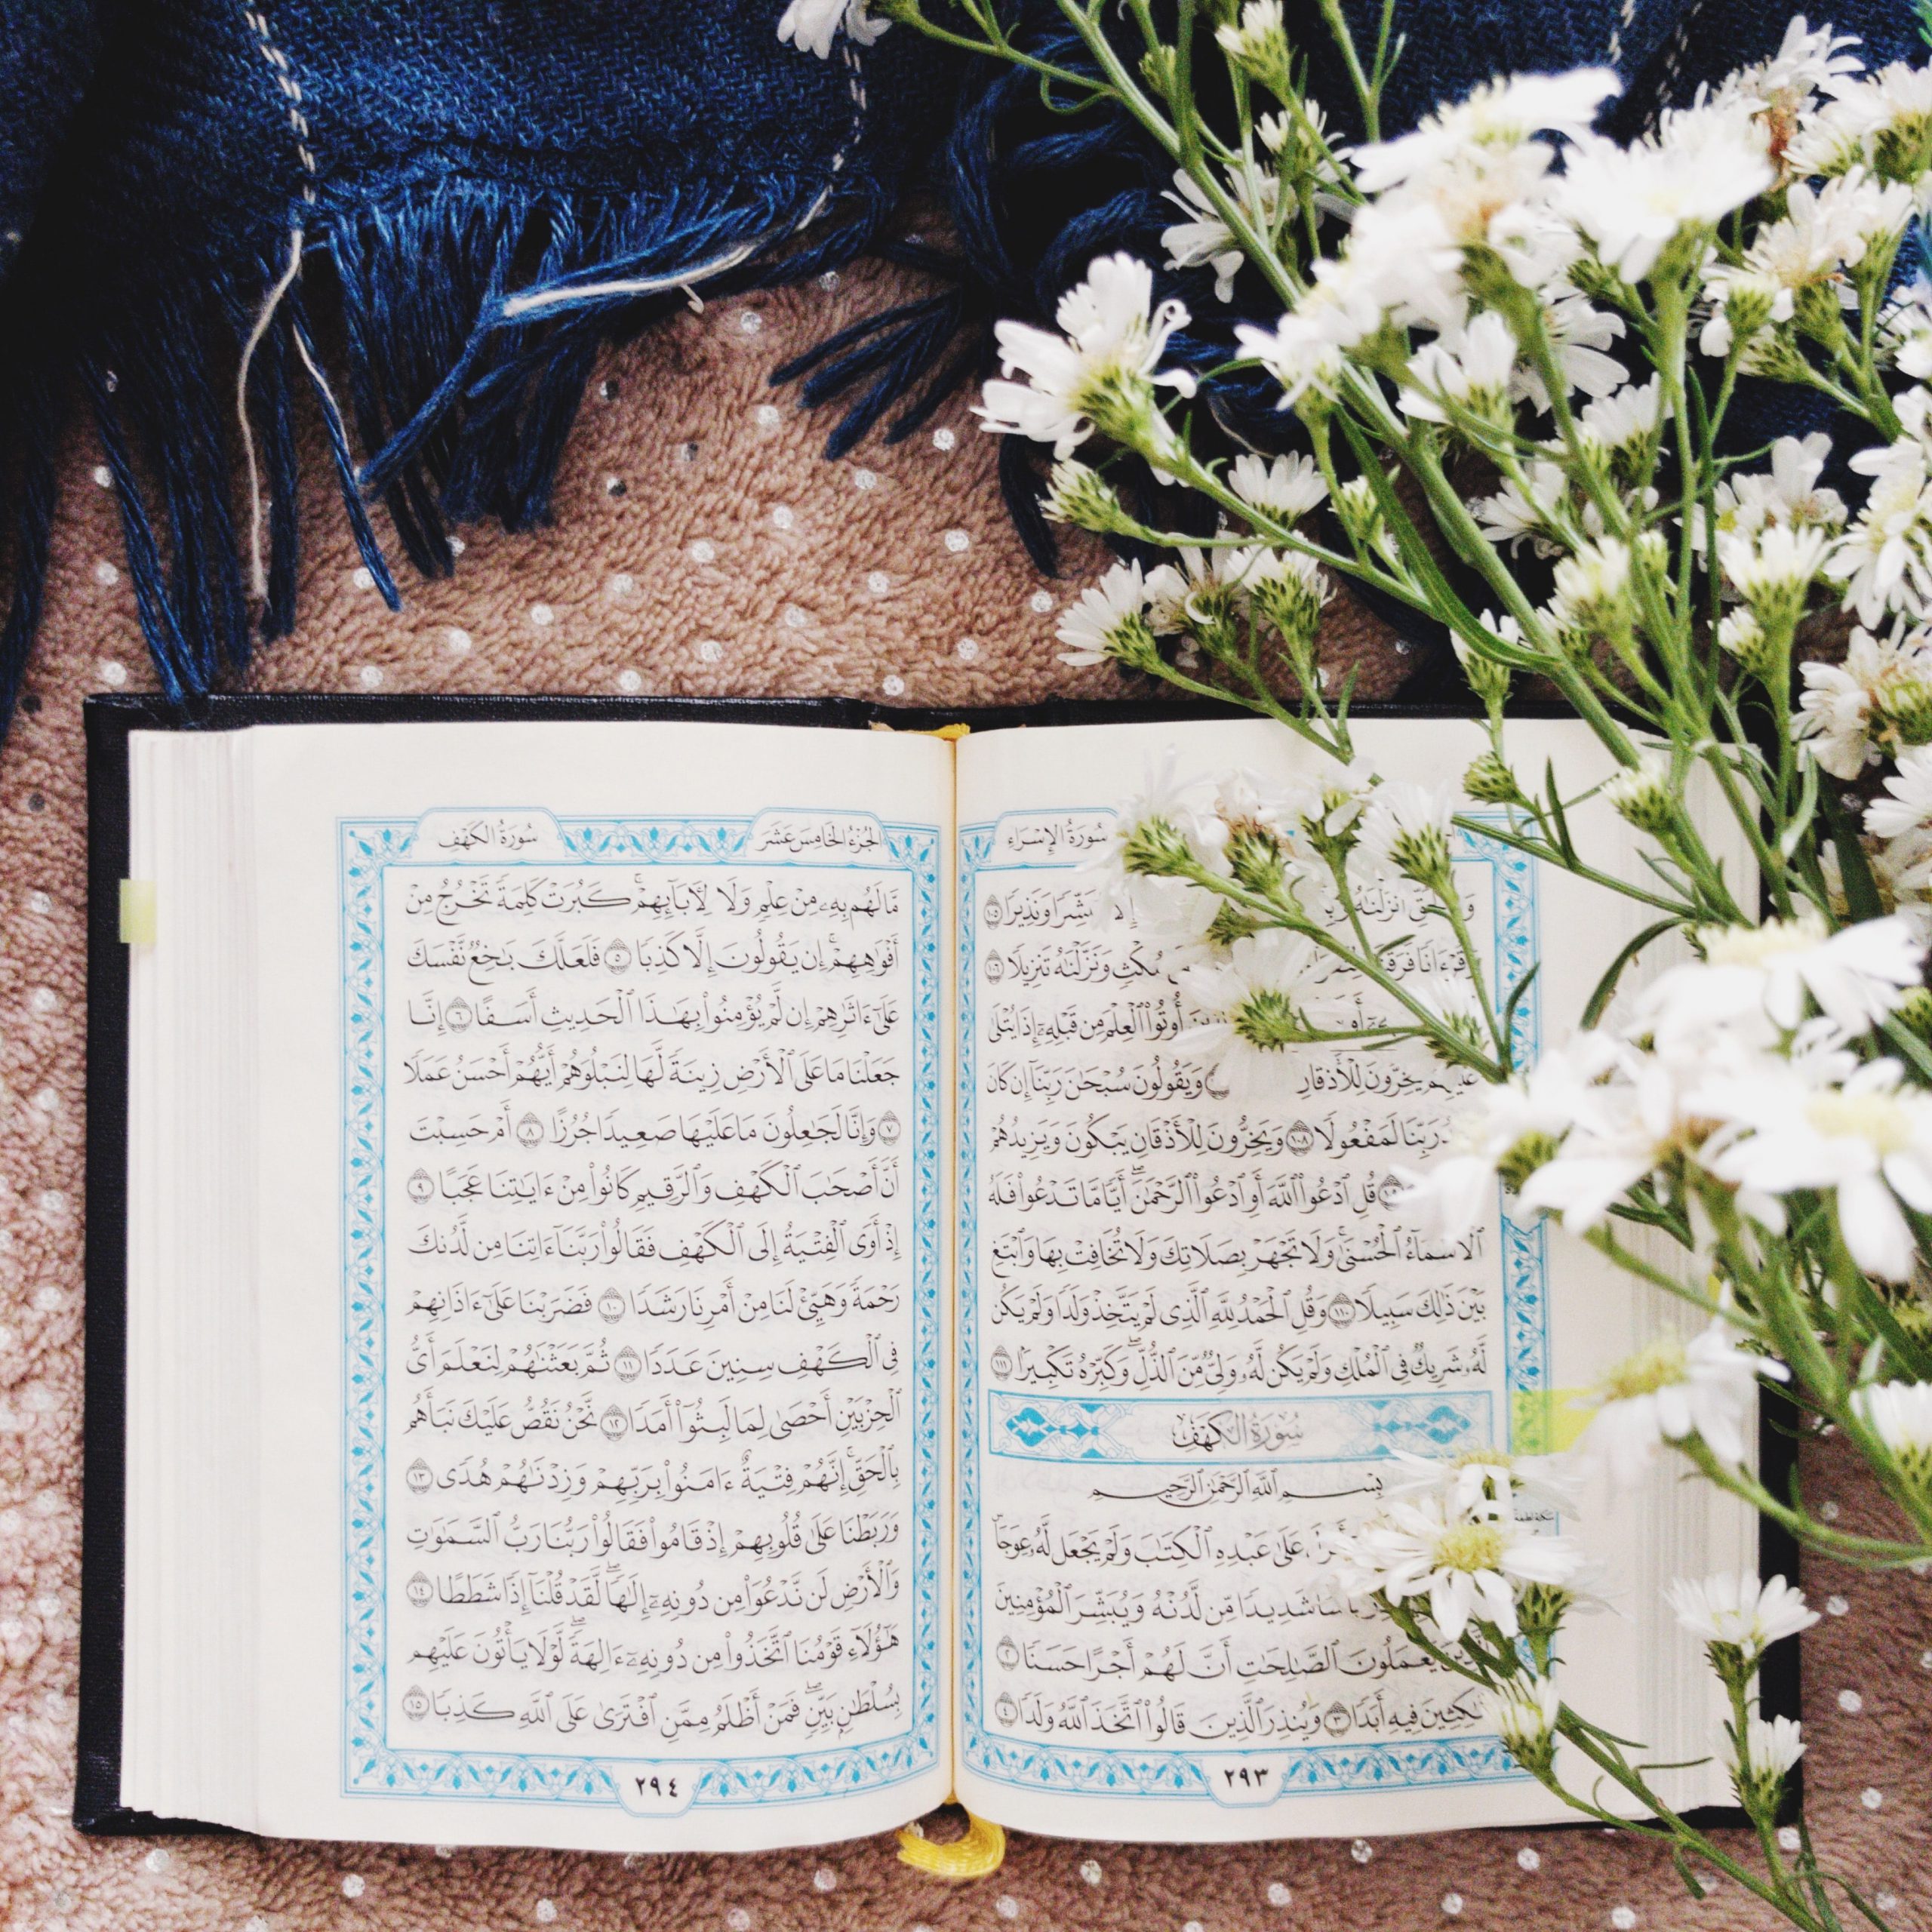 سُورَةُ الإِسْرَاءِ
بَشِّرًا وَنَذِيرًا ١٠٥
مُكْثٍ وَنَزَّلْنَٰهُ تَنزِيلًا ١٠٦
أُوتُوا۟ ٱلْعِلْمَ مِن قَبْلِهِۦٓ إِذَا يُتْلَىٰ
يَخِرُّونَ لِلْأَذْقَانِ وَيَقُولُونَ سُبْحَٰنَ رَبِّنَآ إِن كَانَ
رَبِّنَا لَمَفْعُولًا ١٠٨ وَيَخِرُّونَ لِلْأَذْقَانِ يَبْكُونَ وَيَزِيدُهُمْ
قُلِ ٱدْعُوا۟ ٱللَّهَ أَوِ ٱدْعُوا۟ ٱلرَّحْمَٰنَ ۖ أَيًّا مَّا تَدْعُوا۟ فَلَهُ
ٱلْأَسْمَآءُ ٱلْحُسْنَىٰ ۚ وَلَا تَجْهَرْ بِصَلَاتِكَ وَلَا تُخَافِتْ بِهَا وَٱبْتَغِ
بَيْنَ ذَٰلِكَ سَبِيلًا ١١٠ وَقُلِ ٱلْحَمْدُ لِلَّهِ ٱلَّذِى لَمْ يَتَّخِذْ وَلَدًا وَلَمْ يَكُن
لَّهُۥ شَرِيكٌ فِى ٱلْمُلْكِ وَلَمْ يَكُن لَّهُۥ وَلِىٌّ مِّنَ ٱلذُّلِّ ۖ وَكَبِّرْهُ تَكْبِيرًۢا ١١١
سُورَةُ الكَهْفِ
بِسْمِ ٱللَّهِ ٱلرَّحْمَٰنِ ٱلرَّحِيمِ
عَلَىٰ عَبْدِهِ ٱلْكِتَٰبَ وَلَمْ يَجْعَل لَّهُۥ عِوَجَا ۜ
شَدِيدًا مِّن لَّدُنْهُ وَيُبَشِّرَ ٱلْمُؤْمِنِينَ
يَعْمَلُونَ ٱلصَّٰلِحَٰتِ أَنَّ لَهُمْ أَجْرًا حَسَنًا ٢
مَّٰكِثِينَ فِيهِ أَبَدًا ٣ وَيُنذِرَ ٱلَّذِينَ قَالُوا۟ ٱتَّخَذَ ٱللَّهُ وَلَدًا ٤
٢٩٣
الجُزْءُ الخَامِسَ عَشَرَ
سُورَةُ الكَهْفِ
مَّا لَهُم بِهِۦ مِنْ عِلْمٍ وَلَا لِءَابَآئِهِمْ ۚ كَبُرَتْ كَلِمَةً تَخْرُجُ مِنْ
أَفْوَٰهِهِمْ ۚ إِن يَقُولُونَ إِلَّا كَذِبًا ٥ فَلَعَلَّكَ بَٰخِعٌ نَّفْسَكَ
عَلَىٰٓ ءَاثَٰرِهِمْ إِن لَّمْ يُؤْمِنُوا۟ بِهَٰذَا ٱلْحَدِيثِ أَسَفًا ٦ إِنَّا
جَعَلْنَا مَا عَلَى ٱلْأَرْضِ زِينَةً لَّهَا لِنَبْلُوَهُمْ أَيُّهُمْ أَحْسَنُ عَمَلًا
٧ وَإِنَّا لَجَٰعِلُونَ مَا عَلَيْهَا صَعِيدًا جُرُزًا ٨ أَمْ حَسِبْتَ
أَنَّ أَصْحَٰبَ ٱلْكَهْفِ وَٱلرَّقِيمِ كَانُوا۟ مِنْ ءَايَٰتِنَا عَجَبًا ٩
إِذْ أَوَى ٱلْفِتْيَةُ إِلَى ٱلْكَهْفِ فَقَالُوا۟ رَبَّنَآ ءَاتِنَا مِن لَّدُنكَ
رَحْمَةً وَهَيِّئْ لَنَا مِنْ أَمْرِنَا رَشَدًا ١٠ فَضَرَبْنَا عَلَىٰٓ ءَاذَانِهِمْ
فِى ٱلْكَهْفِ سِنِينَ عَدَدًا ١١ ثُمَّ بَعَثْنَٰهُمْ لِنَعْلَمَ أَىُّ
ٱلْحِزْبَيْنِ أَحْصَىٰ لِمَا لَبِثُوٓا۟ أَمَدًا ١٢ نَّحْنُ نَقُصُّ عَلَيْكَ نَبَأَهُم
بِٱلْحَقِّ ۚ إِنَّهُمْ فِتْيَةٌ ءَامَنُوا۟ بِرَبِّهِمْ وَزِدْنَٰهُمْ هُدًى ١٣
وَرَبَطْنَا عَلَىٰ قُلُوبِهِمْ إِذْ قَامُوا۟ فَقَالُوا۟ رَبُّنَا رَبُّ ٱلسَّمَٰوَٰتِ
وَٱلْأَرْضِ لَن نَّدْعُوَا۟ مِن دُونِهِۦٓ إِلَٰهًا ۖ لَّقَدْ قُلْنَآ إِذًا شَطَطًا ١٤
هَٰٓؤُلَآءِ قَوْمُنَا ٱتَّخَذُوا۟ مِن دُونِهِۦٓ ءَالِهَةً ۖ لَّوْلَا يَأْتُونَ عَلَيْهِم
بِسُلْطَٰنٍۭ بَيِّنٍ ۖ فَمَنْ أَظْلَمُ مِمَّنِ ٱفْتَرَىٰ عَلَى ٱللَّهِ كَذِبًا ١٥
٢٩٤